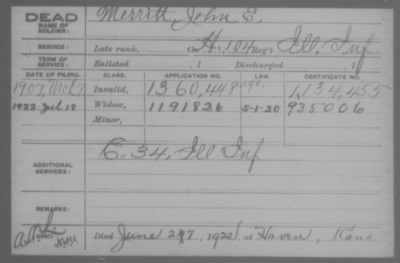 DEAD
NAME OF SOLDIER: Merritt, John E.
SERVICE: Late rank, H. 104 Ill. Inf
TERM OF SERVICE: Enlisted , 1 Discharged , 1
DATE OF FILING. CLASS. APPLICATION NO. LAW. CERTIFICATE NO.
1907, Mch 7 Invalid, 1360,448 1,134,455
1922 Jul 18 Widow, 1191826 5-1-20 935006
Minor,
ADDITIONAL SERVICES: C. 34, Ill Inf
REMARKS:
Died June 27, 1922, at Haven, Kans